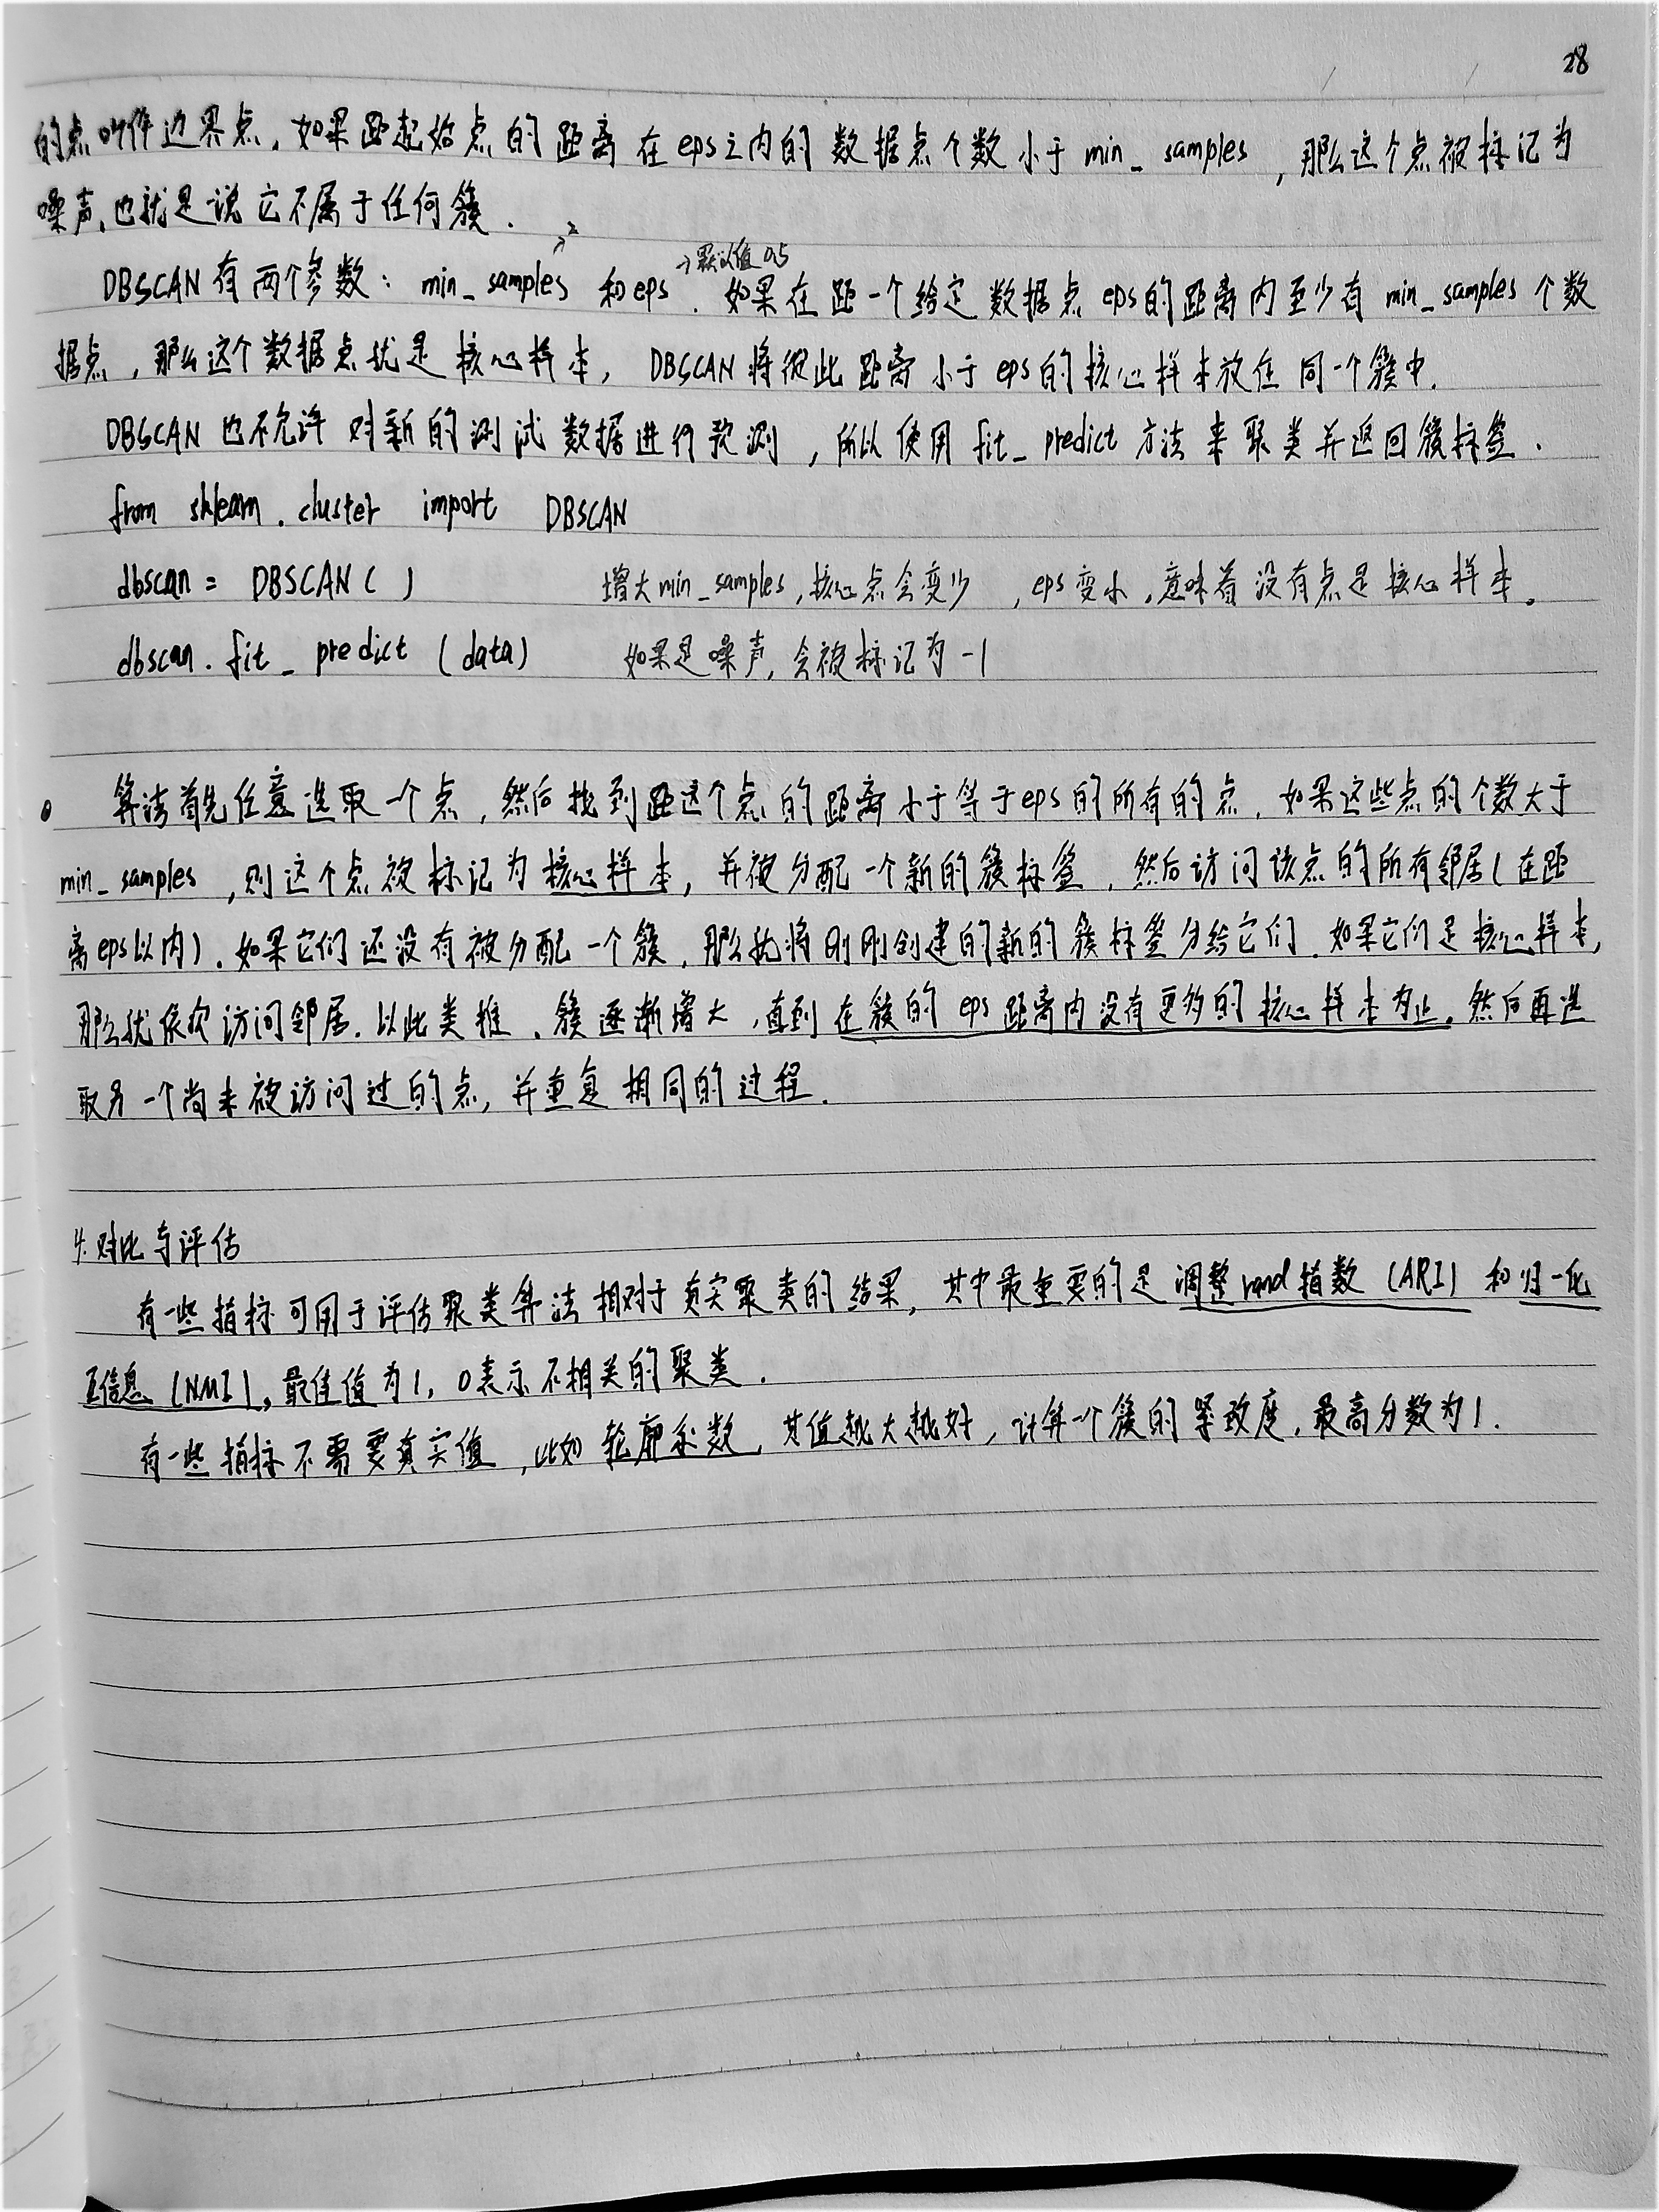 28
的点叫作边界点,如果距起始点的距离在eps之内的数据点个数小于min_samples,那么这个点被标记为
噪声,也就是说它不属于任何簇.
→2
→默认值0.5
DBSCAN有两个参数: min_samples 和eps. 如果在距一个给定数据点eps的距离内至少有min_samples个数
据点,那么这个数据点就是核心样本, DBSCAN将彼此距离小于eps的核心样本放在同一个簇中.
DBSCAN也不允许对新的测试数据进行预测,所以使用fit_predict方法来聚类并返回簇标签.
from sklearn.cluster import DBSCAN
dbscan = DBSCAN( ) 增大min_samples,核心点会变少,eps变小,意味着没有点是核心样本.
dbscan.fit_predict (data) 如果是噪声,会被标记为-1
算法首先任意选取一个点,然后找到距这个点的距离小于等于eps的所有的点.如果这些点的个数大于
min_samples,则这个点被标记为核心样本,并被分配一个新的簇标签.然后访问该点的所有邻居(在距
离eps以内).如果它们还没有被分配一个簇,那么就将刚刚创建的新的簇标签分给它们.如果它们是核心样本,
那么就依次访问邻居.以此类推.簇逐渐增大,直到在簇的eps距离内没有更多的核心样本为止.然后再选
取另一个尚未被访问过的点,并重复相同的过程.
4.对比与评估
有一些指标可用于评估聚类算法相对于真实聚类的结果,其中最重要的是调整rand指数(ARI)和归一化
互信息(NMI),最佳值为1,0表示不相关的聚类.
有一些指标不需要真实值,比如轮廓系数,其值越大越好,计算一个簇的紧致度,最高分数为1.